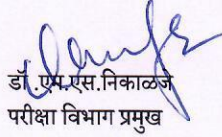 डॉ. एम.एस.निकाळजे
परीक्षा विभाग प्रमुख